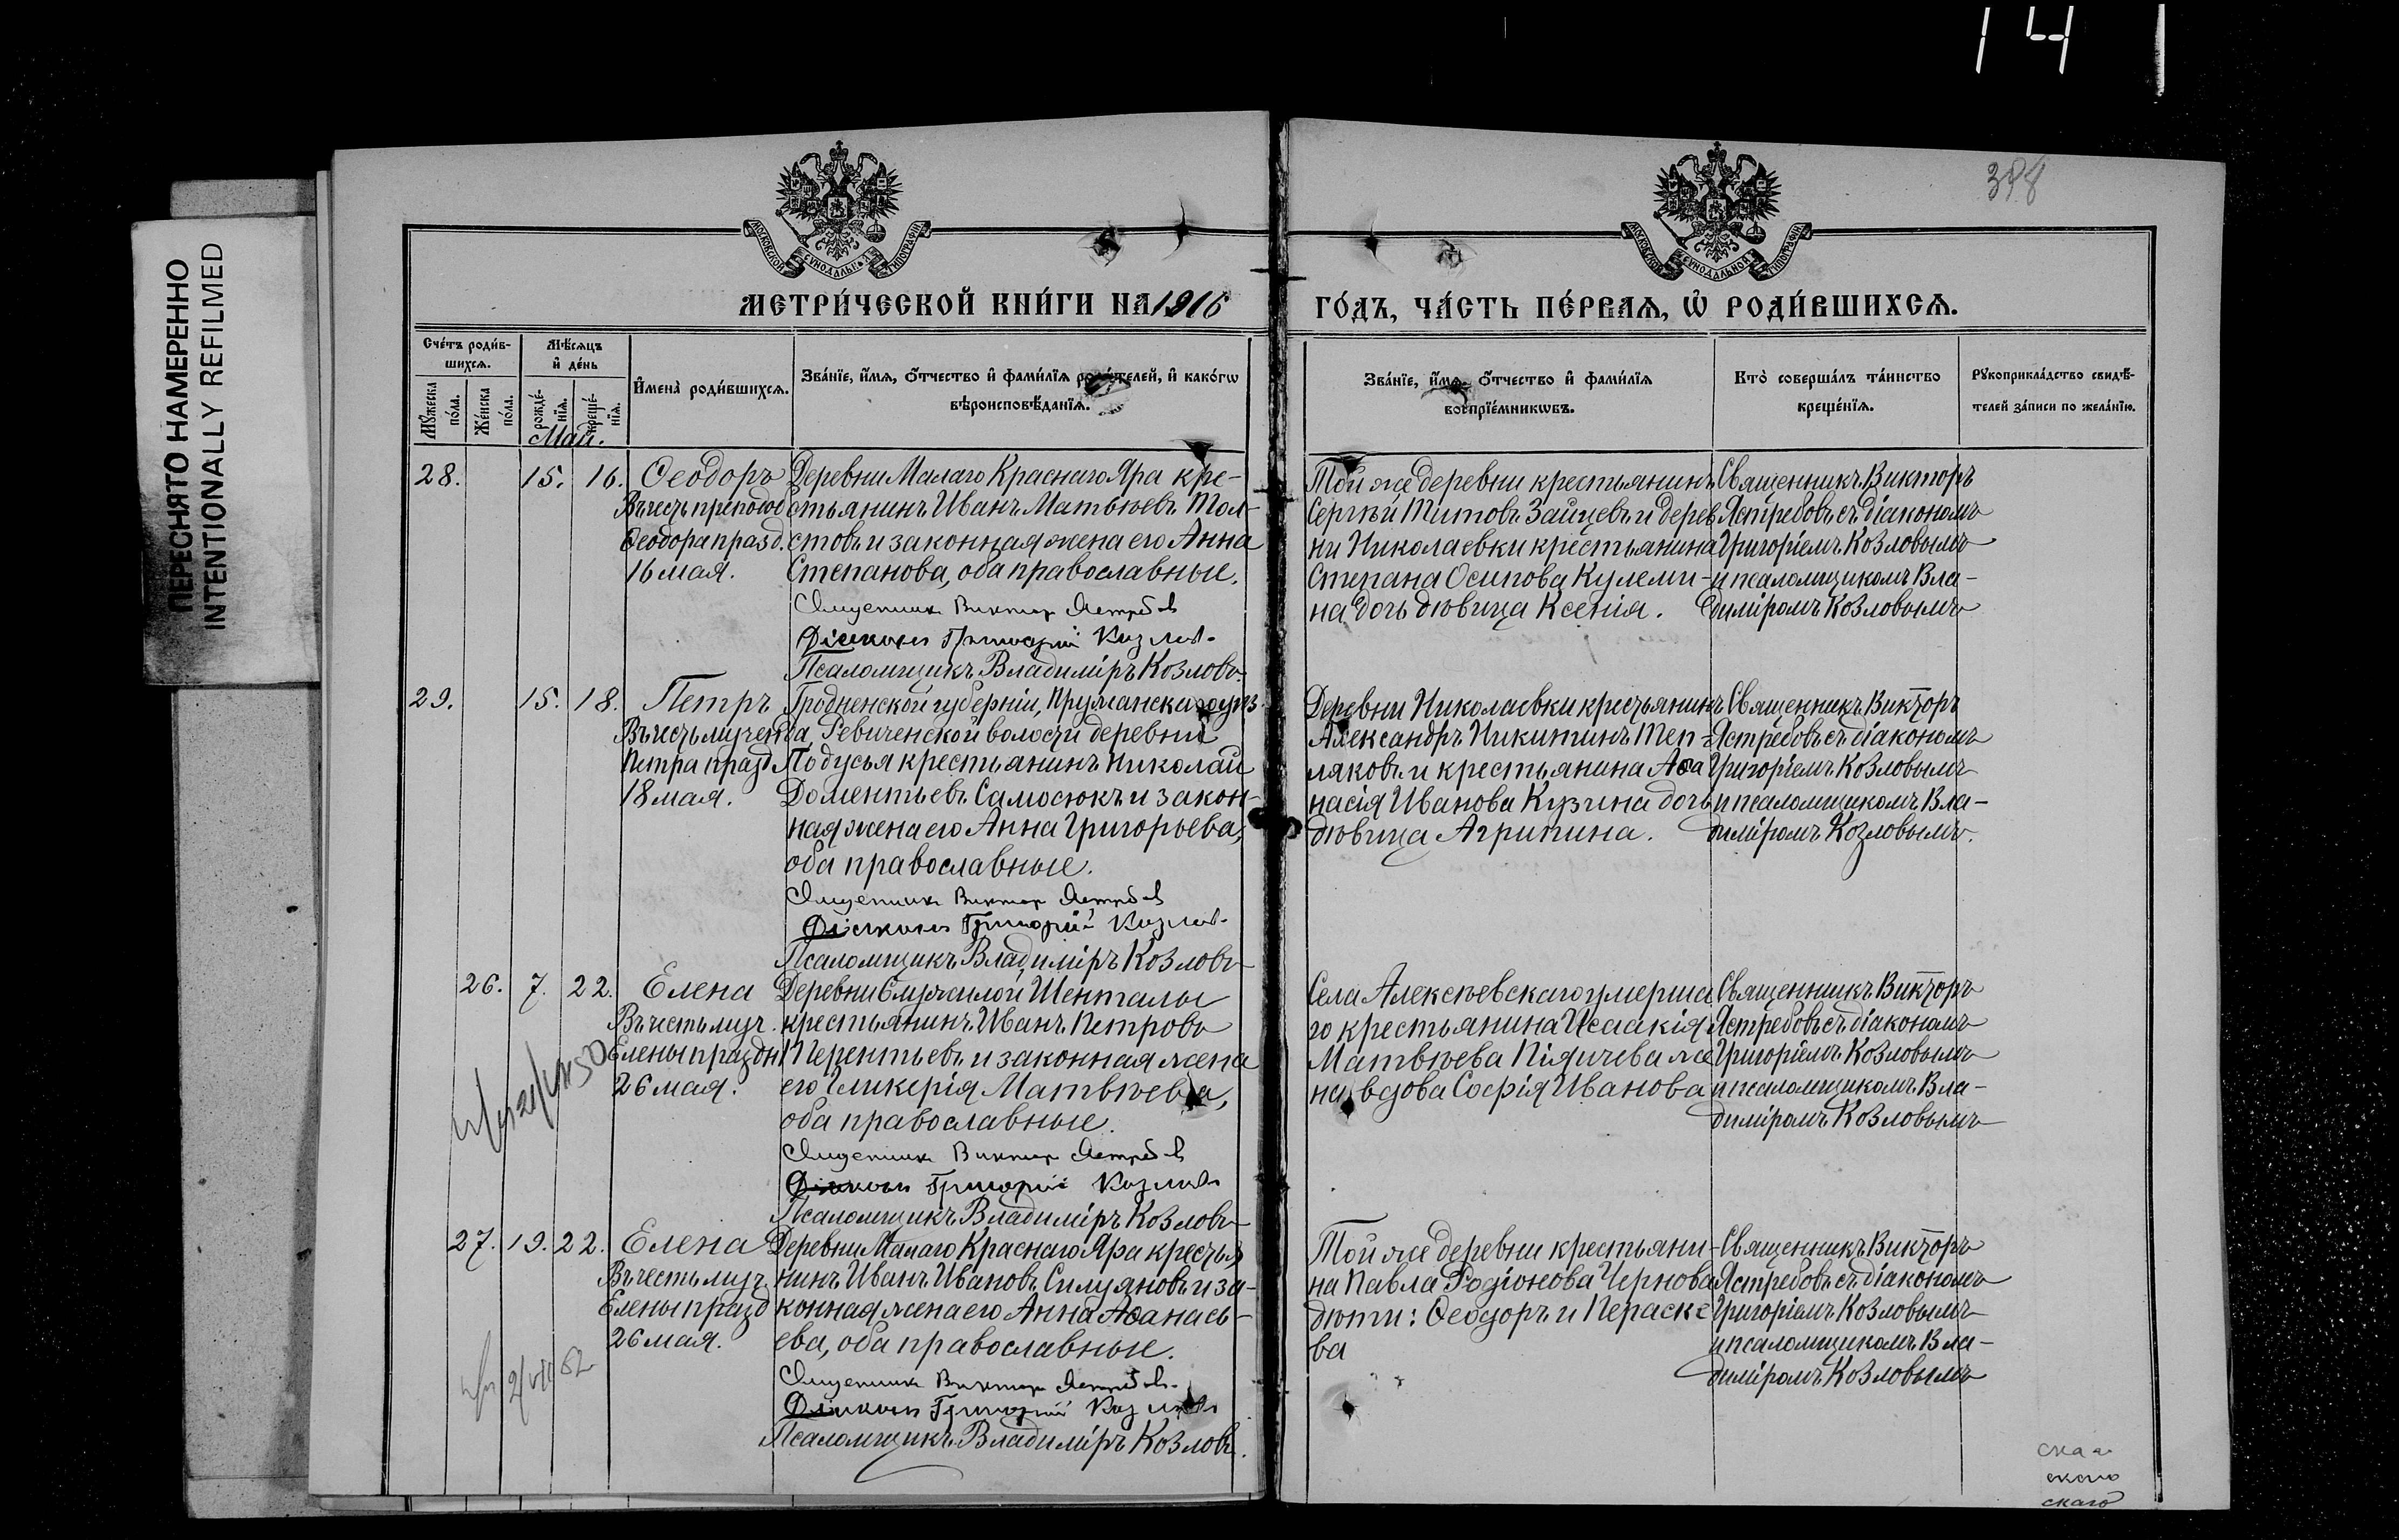 141
ПЕРЕСНЯТО НАМЕРЕННО
INTENTIONALLY REFILMED
398
МОСКОВСКОЙ СѴНОДАЛЬНОЙ ТИПОГРАФІИ
МОСКОВСКОЙ СѴНОДАЛЬНОЙ ТИПОГРАФІИ
МЕТРИ́ЧЕСКОЙ КНИ́ГИ НА 1916
ГО́ДЪ, ЧА́СТЬ ПЕ́РВАѦ, Ѡ҆ РОДИ́ВШИХСѦ.
Сче́тъ роди́в-
шихся.
Мѣ́сяцъ
и҆ де́нь
Мꙋ́жеска
по́ла.
Же́нска
по́ла.
рожде́-
нїя.
креще́-
нїя.
И҆мена̀ роди́вшихся.
Зва́нїе, и҆́мя, ѻ҆́тчество и҆ фами́лїя роди́телей, и҆ како́гѡ
вѣроисповѣ́данїя.
Зва́нїе, и҆́мя, ѻ҆́тчество и҆ фами́лїя
воспрїе́мникѡвъ.
Кто̀ соверша́лъ та́инство
креще́нїя.
Рꙋкоприкла́дство свидѣ́-
телей за́писи по жела́нїю.
Май.
28. 15. 16. Ѳеодоръ Деревни Малаго Краснаго Яра кре-
Въ честь преподоб стьянинъ Иванъ Матвѣевъ Тол-
Ѳеодора празд. стовъ и законная жена его Анна
16 мая. Степанова, оба православные.
Священникъ Викторъ Ястребовъ
Діаконъ Григорій Козловъ
Псаломщикъ Владиміръ Козловъ
Той же деревни крестьянинъ
Сергѣй Титовъ Зайцевъ и дерев
ни Николаевки крестьянина
Степана Осипова Кулеми-
на дочь дѣвица Ксенія.
Священникъ Викторъ
Ястребовъ съ діакономъ
Григоріемъ Козловымъ
и псаломщикомъ Вла-
диміромъ Козловымъ
29. 15. 18. Петръ Гродненской губерніи, Пружанскаго уѣз
Въ честь мученика да, Ревиченской волости деревни
Петра празд Подусья крестьянинъ Николай
18 мая. Доментьевъ Самосюкъ и закон-
ная жена его Анна Григорьева,
оба православные.
Священникъ Викторъ Ястребовъ
Діаконъ Григорій Козловъ
Псаломщикъ Владиміръ Козловъ
Деревни Николаевки крестьянинъ
Александръ Никитинъ Теп-
ляковъ и крестьянина Аѳа
насія Иванова Кузина дочь
дѣвица Агрипина.
Священникъ Викторъ
Ястребовъ съ діакономъ
Григоріемъ Козловымъ
и псаломщикомъ Вла-
диміромъ Козловымъ.
26. 7. 22. Елена Деревни Служилой Шенталы
Въ честь муч. крестьянинъ Иванъ Петровъ
Елены праздн Перентьевъ и законная жена
26 мая. его Гликерія Матвѣева,
оба православные.
Священникъ Викторъ Ястребовъ
Діаконъ Григорій Козловъ
Псаломщикъ Владиміръ Козловъ
Села Алексѣевскаго умерша
го крестьянина Исаакія
Матвѣева Пѣдичева же
на вдова Софія Иванова
Священникъ Викторъ
Ястребовъ съ діакономъ
Григоріемъ Козловымъ
и псаломщикомъ Вла-
диміромъ Козловымъ
27. 19. 22. Елена Деревни Малаго Краснаго Яра крестья
Въ честь муч нинъ Иванъ Ивановъ Силуяновъ и за-
Елены празд конная жена его Анна Аѳанась-
26 мая. ева, оба православные.
Священникъ Викторъ Ястребовъ
Діаконъ Григорій Козловъ
Псаломщикъ Владиміръ Козловъ.
Той же деревни крестьяни-
на Павла Родіонова Чернова
дѣти: Ѳеодоръ и Параске
ва
Священникъ Викторъ
Ястребовъ съ діакономъ
Григоріемъ Козловымъ
и псаломщикомъ Вла-
диміромъ Козловымъ
скаго
скаго